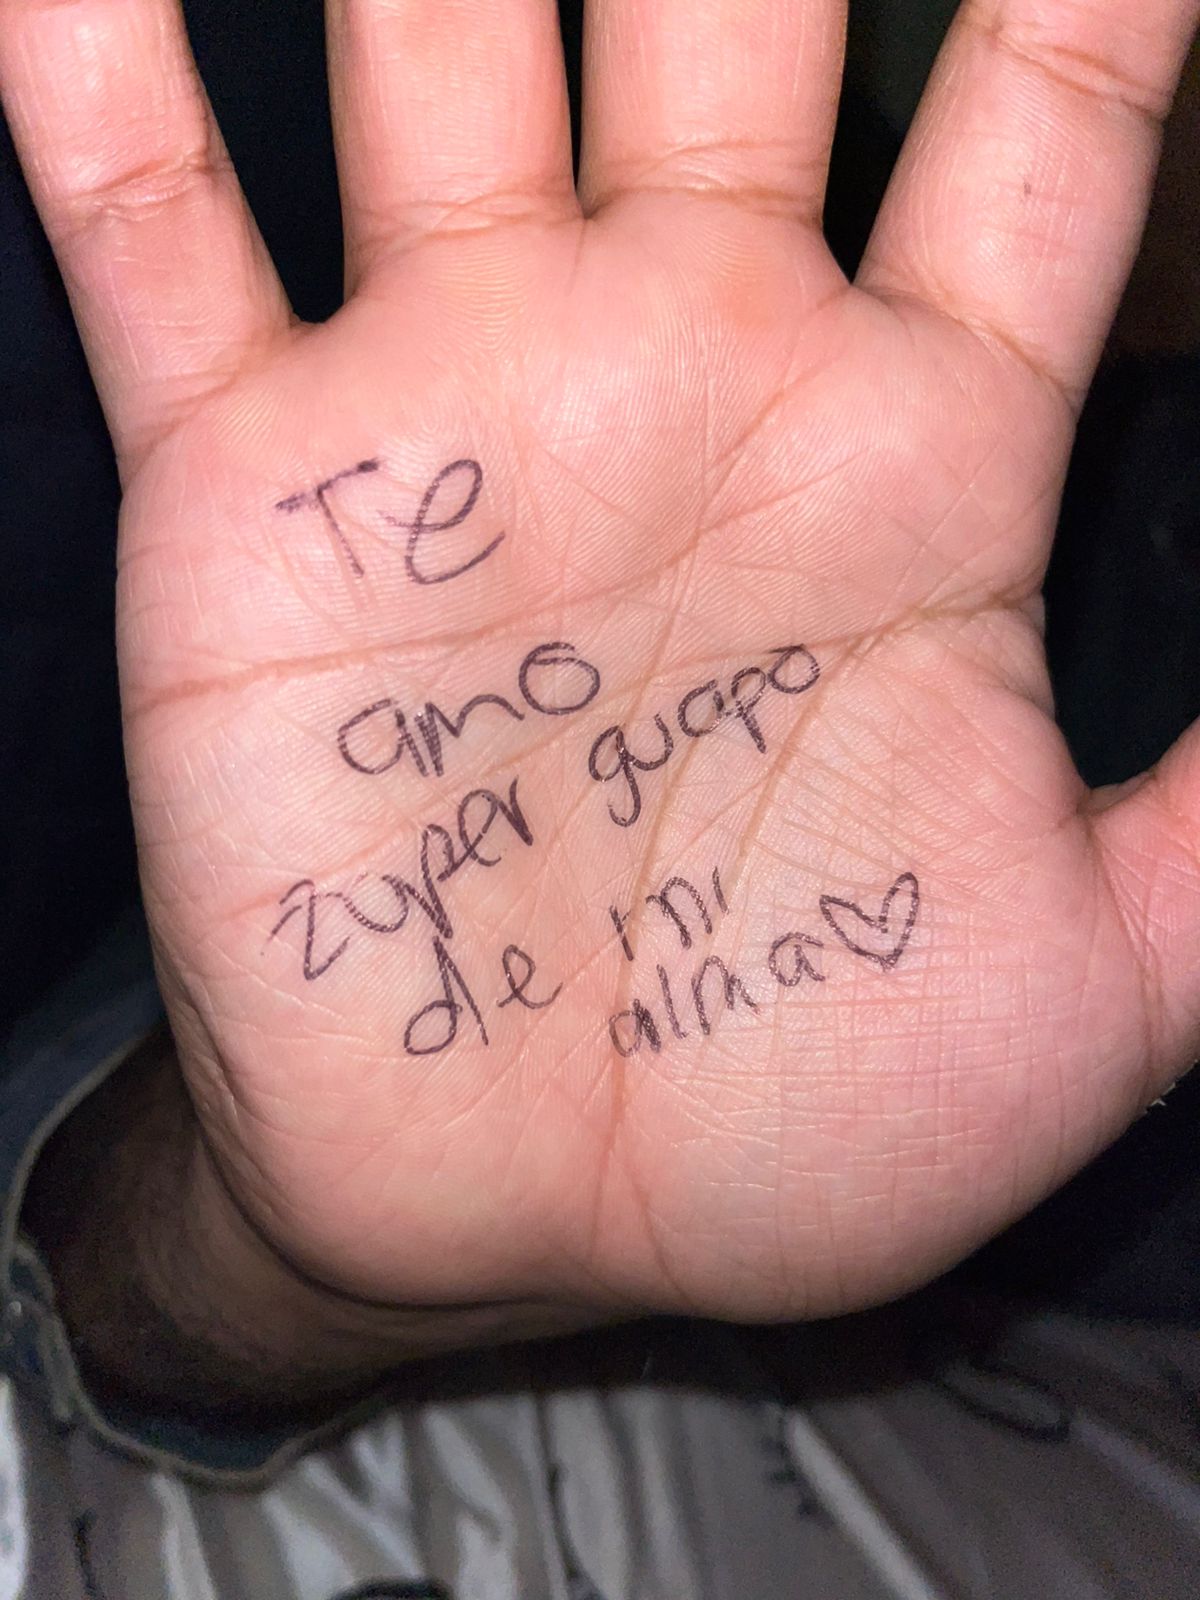 Te
amo
zuper guapo
de mi
alma♡